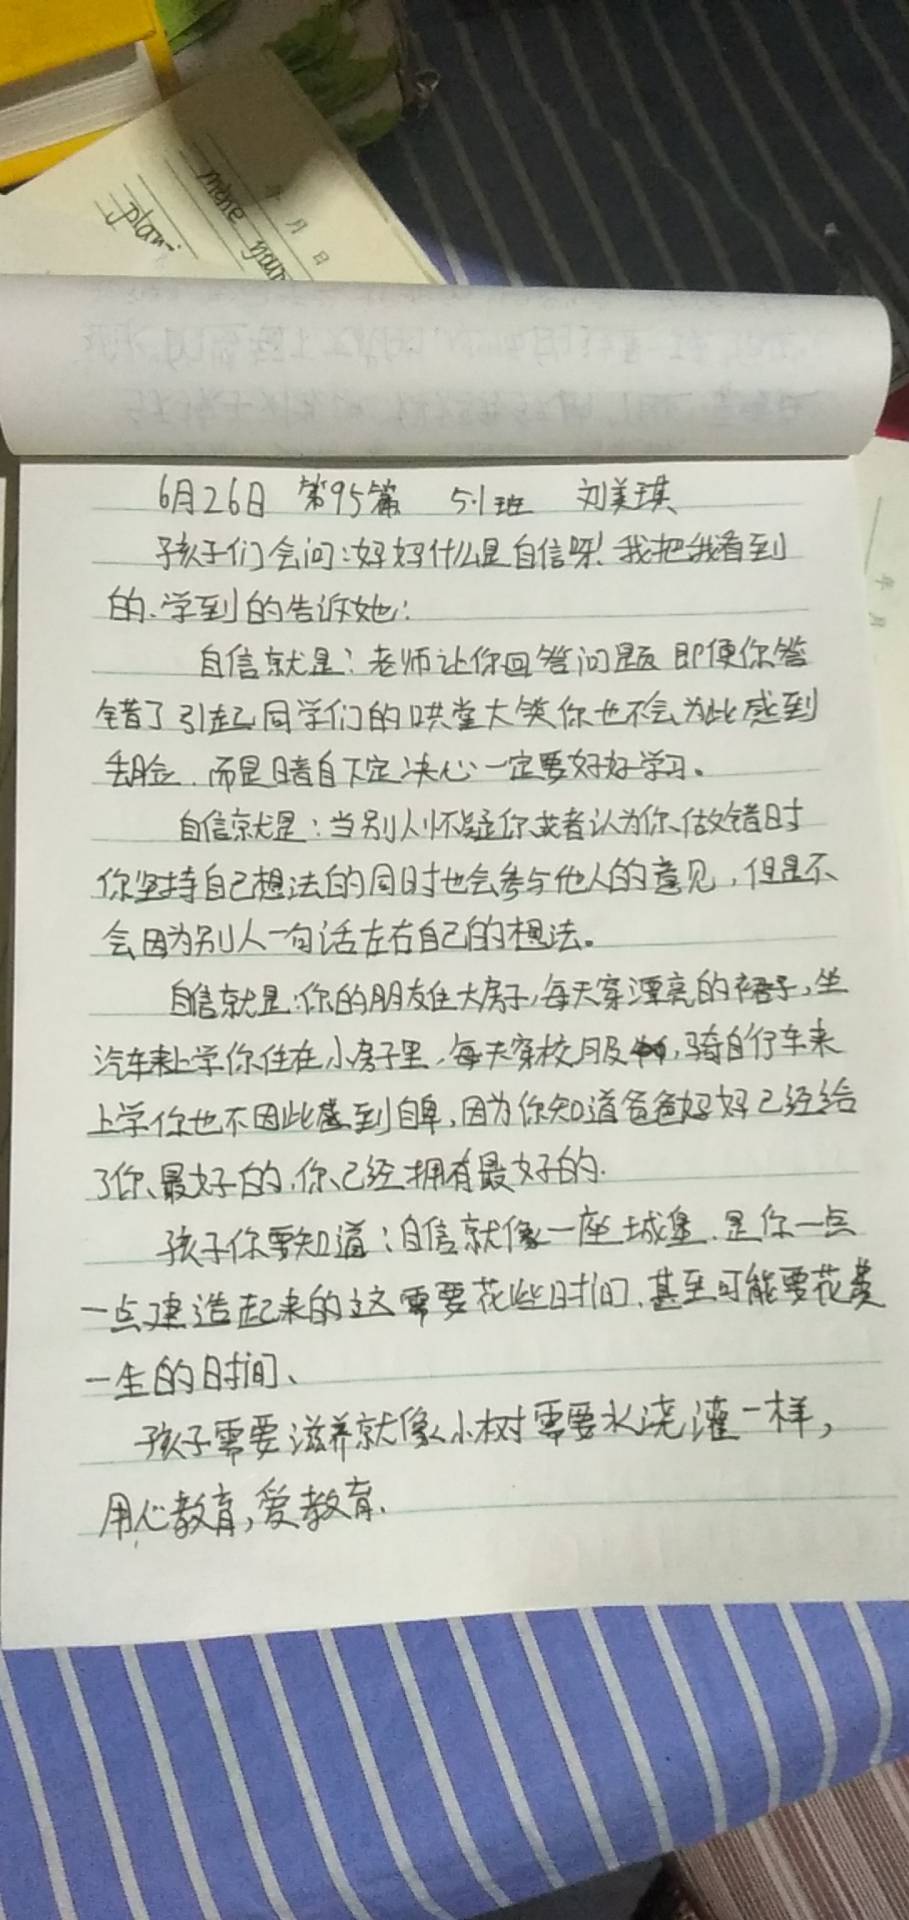 年 月 日
mene your
plan
6月26日 第95篇 5.1班 刘美琪
孩子们会问:好好什么是自信呀!我把我看到
的、学到的告诉她:
自信就是:老师让你回答问题 即便你答
错了引起同学们的哄堂大笑你也不会为此感到
丢脸.而是暗自下定决心一定要好好学习。
自信就是:当别人怀疑你或者认为你做错时
你坚持自己想法的同时也会参与他人的意见,但是不
会因为别人一句话左右自己的想法。
自信就是:你的朋友住大房子,每天穿漂亮的裙子,坐
汽车来上学你住在小房子里,每天穿校服,骑自行车来
上学你也不因此感到自卑,因为你知道爸爸好好已经给
了你最好的.你已经拥有最好的.
孩子你要知道:自信就像一座城堡.是你一点
一点建造起来的这需要花些时间.甚至可能要花费
一生的时间、
孩子需要滋养就像小树需要水浇灌一样,
用心教育,爱教育.
年 月